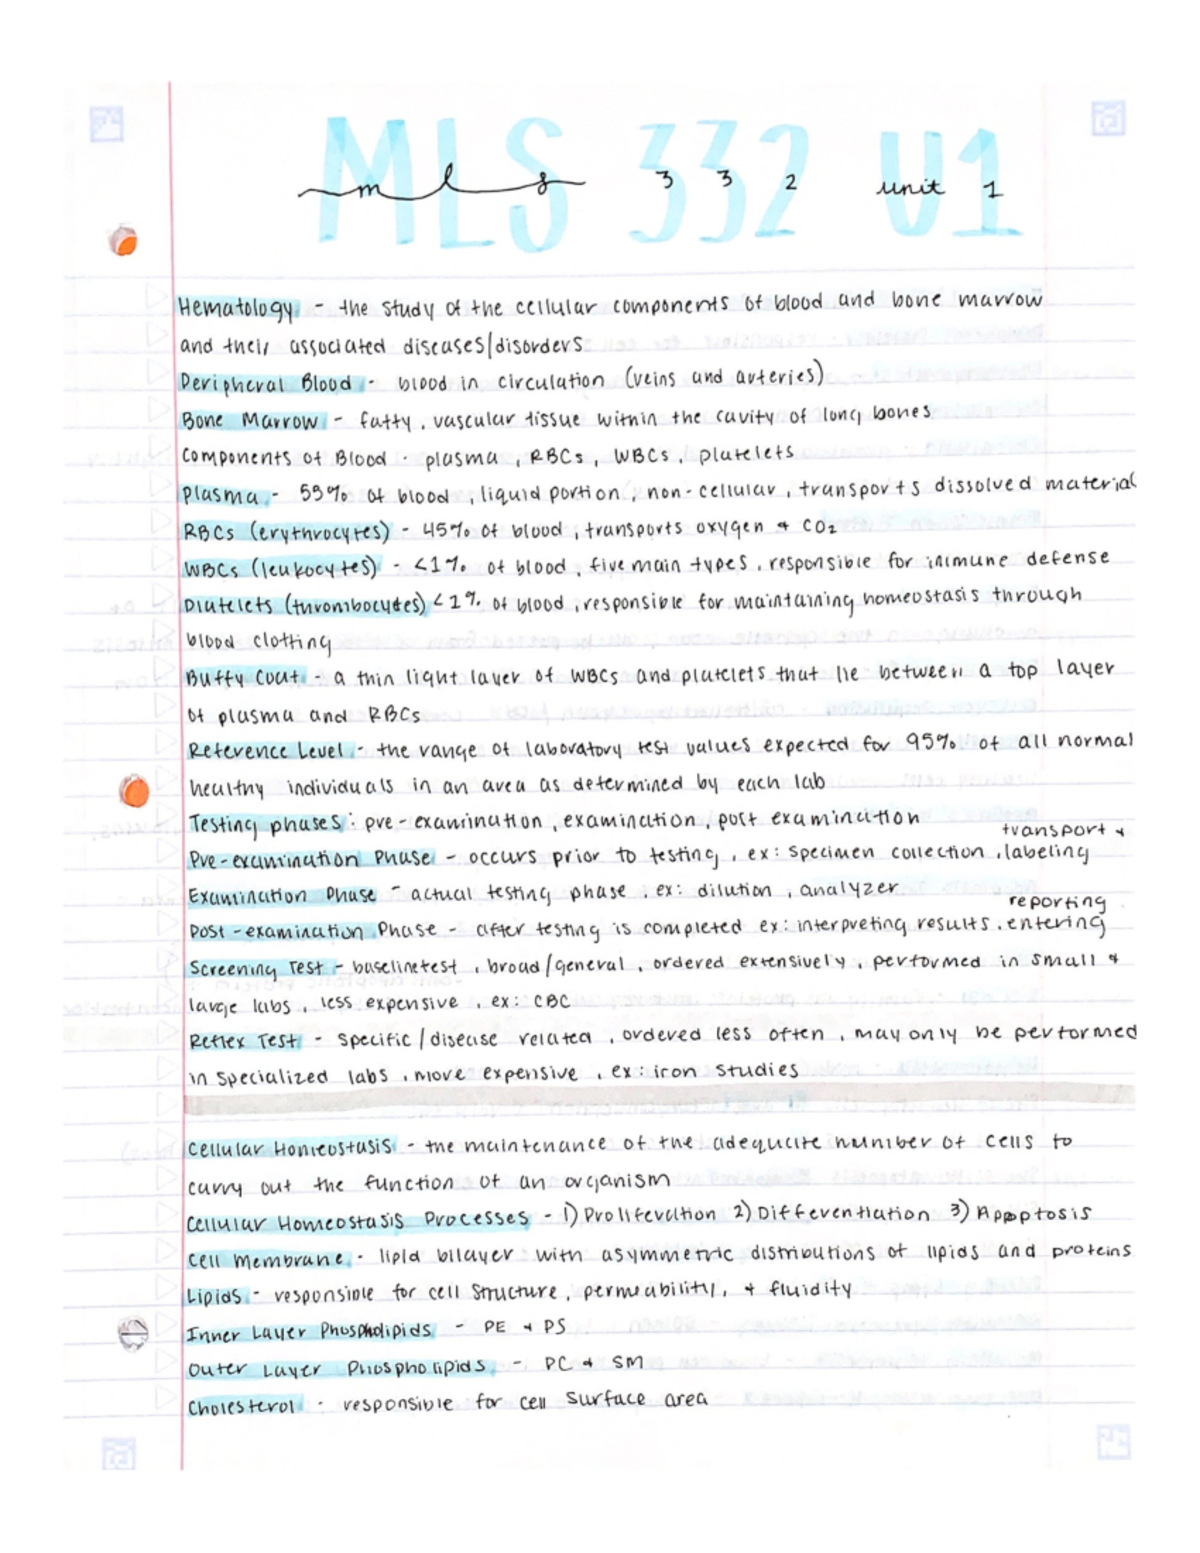 MLS 332 U1
mls 332 unit 1
Hematology - the study of the cellular components of blood and bone marrow
and their associated diseases/disorders
Peripheral Blood - blood in circulation (veins and arteries)
Bone Marrow - fatty, vascular tissue within the cavity of long bones
Components of Blood - plasma, RBCs, WBCs, platelets
Plasma - 55% of blood, liquid portion, non-cellular, transports dissolved material
RBCs (erythrocytes) - 45% of blood, transports oxygen + CO2
WBCs (leukocytes) - <1% of blood, five main types, responsible for immune defense
Platelets (thrombocytes) <1% of blood, responsible for maintaining homeostasis through
blood clotting
Buffy Coat - a thin light layer of WBCs and platelets that lie between a top layer
of plasma and RBCs
Reference Level - the range of laboratory test values expected for 95% of all normal
healthy individuals in an area as determined by each lab
Testing phases: pre-examination, examination, post examination
transport +
Pre-examination Phase - occurs prior to testing, ex: specimen collection, labeling
Examination Phase - actual testing phase, ex: dilution, analyzer
reporting
Post-examination Phase - after testing is completed ex: interpreting results, entering
Screening Test - baseline test, broad/general, ordered extensively, performed in small +
large labs, less expensive, ex: CBC
Reflex Test - specific/disease related, ordered less often, may only be performed
in specialized labs, more expensive, ex: iron studies
Cellular Homeostasis - the maintenance of the adequate number of cells to
carry out the function of an organism
Cellular Homeostasis Processes - 1) Proliferation 2) Differentiation 3) Apoptosis
Cell Membrane - lipid bilayer with asymmetric distributions of lipids and proteins
Lipids - responsible for cell structure, permeability, + fluidity
Inner Layer Phospholipids - PE + PS
Outer Layer Phospholipids - PC + SM
Cholesterol - responsible for cell surface area